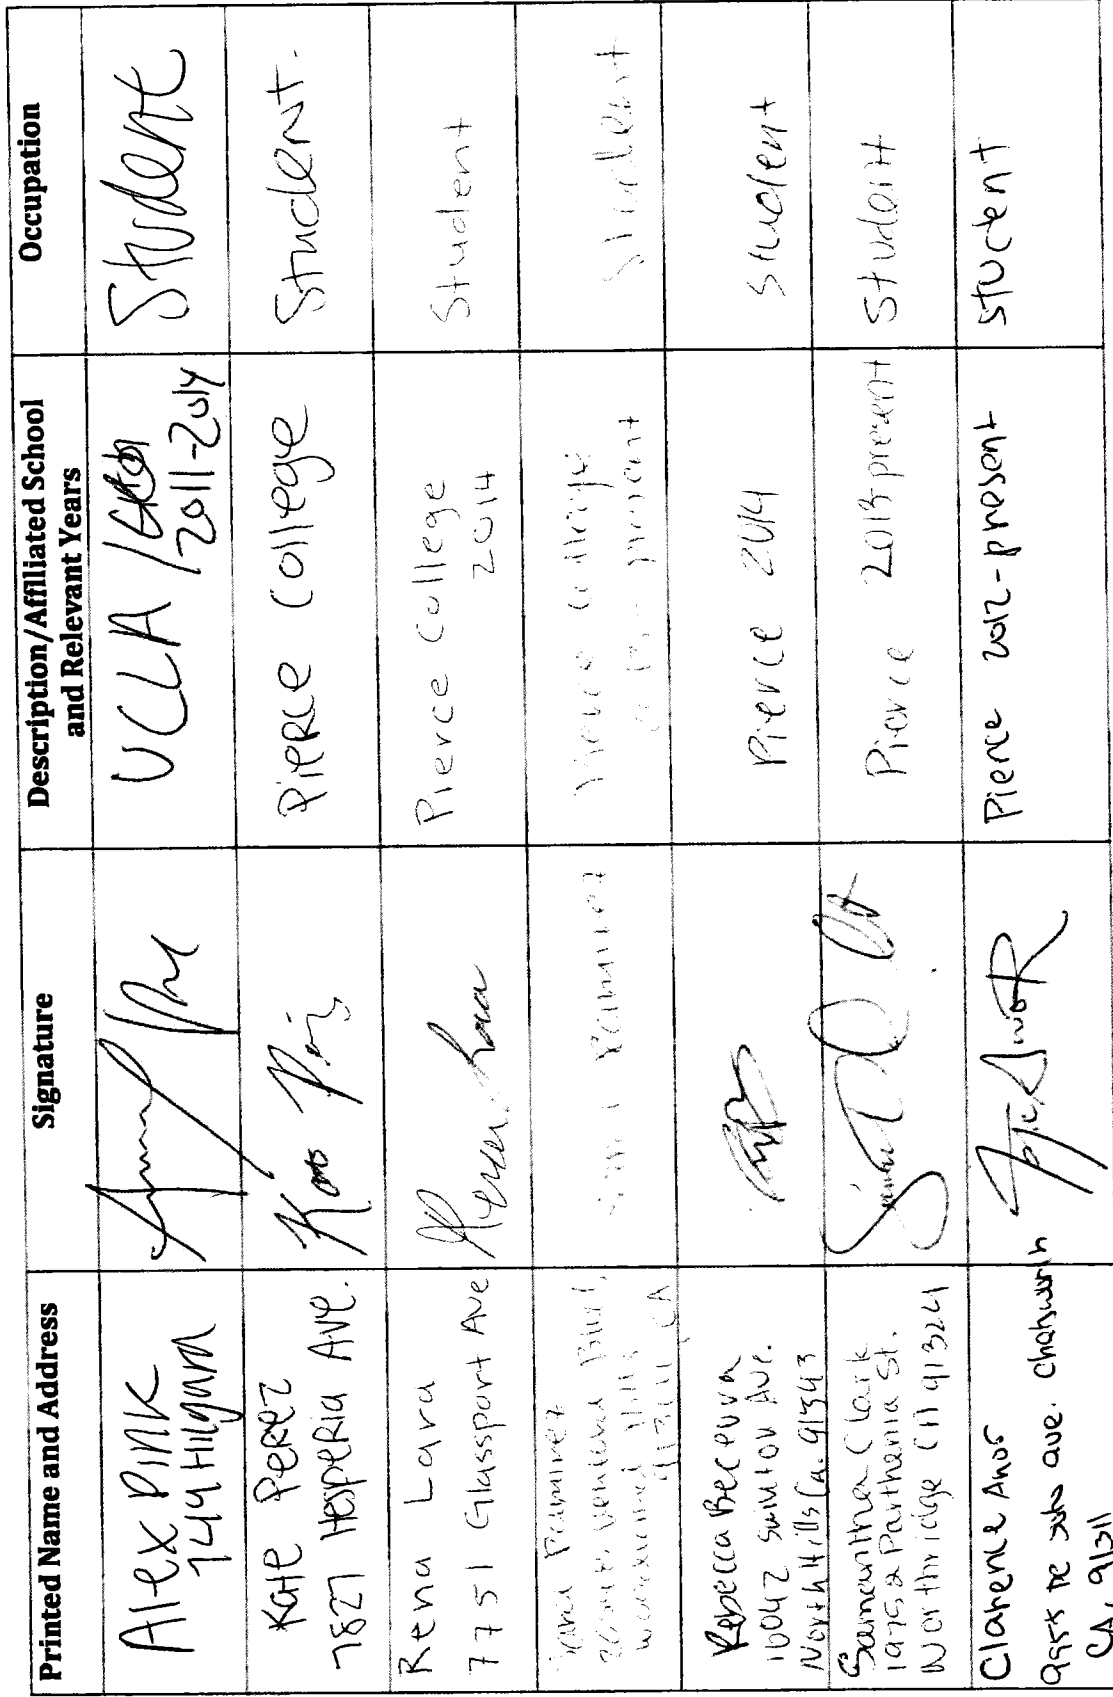 Printed Name and Address
Signature
Description/Affiliated School
and Relevant Years
Occupation
Alex Pink
744 Hilgard
UCLA /
2011-2014
Student
Kate Perez
7827 Hesperia Ave.
Pierce College
Student.
Rena Lara
7751 Glassport Ave
Rena Lara
Pierce College
2014
Student
Ramirez
Ventura Blvd,
Woodland Hills
CA
Ramirez
Pierce College
present
Student
Rebecca Becerra
Ave.
North Hills Ca. 91343
Pierce 2014
Student
Samantha Clark
Parthenia St.
Northridge CA 91324
Pierce 2013-present
Student
Clarence
9955 De Soto ave. Chatsworth
CA, 91311
Pierce 2012-present
Student